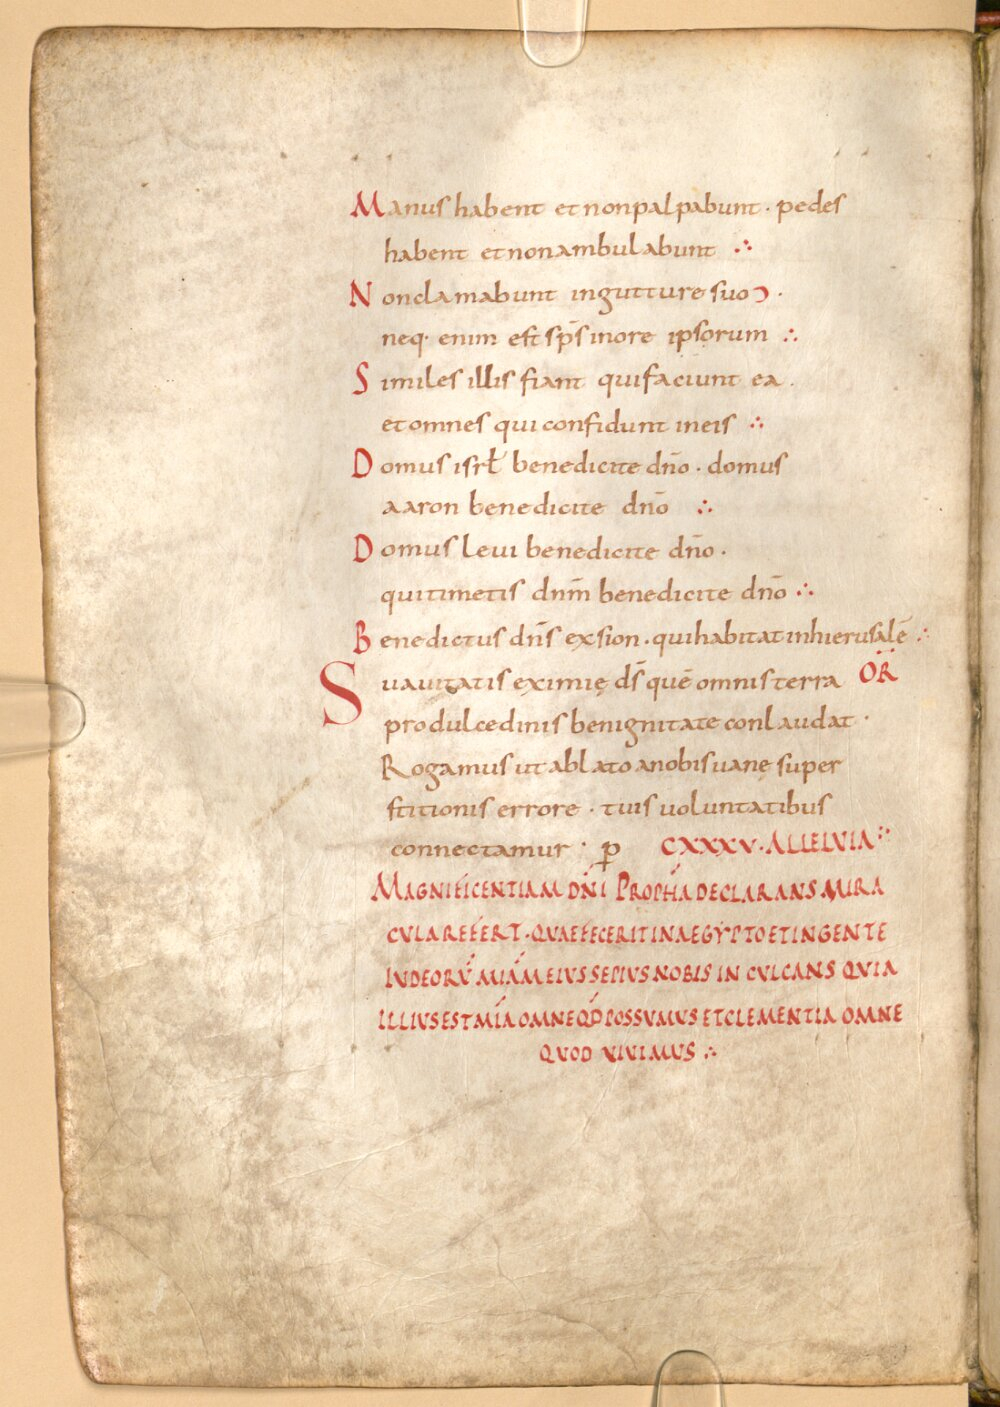 Manus habent et non palpabunt · pedes
habent et non ambulabunt ∴
Non clamabunt in gutture suo ·
neq· enim est sp̄s in ore ipsorum ∴
Similes illis fiant qui faciunt ea ·
et omnes qui confidunt in eis ∴
Domus isrł benedicite dño · domus
aaron benedicite dño ∴
Domus leui benedicite dño ·
qui timetis dnm̄ benedicite dño ∴
Benedictus dn̄s ex sion · qui habitat in hierusalē ∴
Suauitatis eximię ds̄ quē omnis terra OR̄
pro dulcedinis benignitate conlaudat ·
Rogamus ut ablato a nobis uanę super
stitionis errore · tuis uoluntatibus
connectamur · p CXXXV · ALLELVIA ∴
MAGNIFICENTIAM DN̄I PROPH̄A DECLARANS MIRA
CVLA REFERT · QVAE FECERIT IN AEGYPTO ET INGENTE
IUDEORV̄ MIĀM EIVS SEPIVS NOBIS IN CVLCANS QVIA
ILLIVS EST MĪA OMNE QD̄ POSSVMVS ET CLEMENTIA OMNE
QVOD VIVIMVS ∴